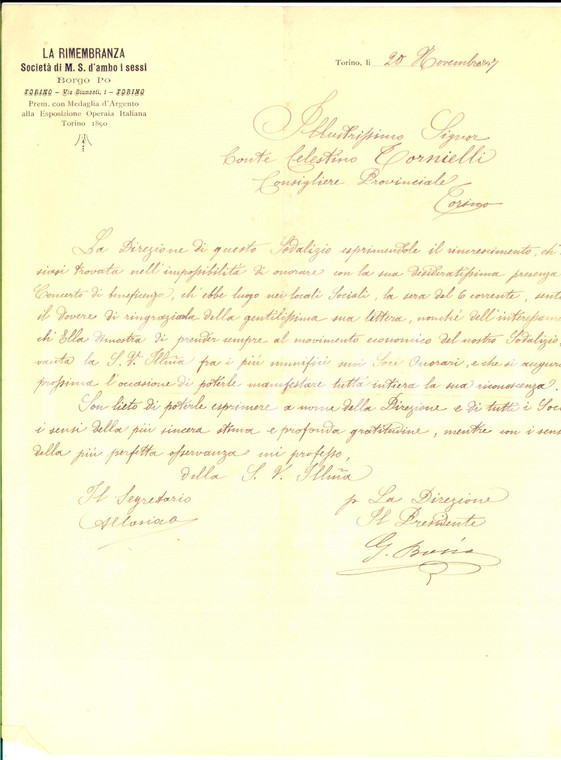 LA RIMEMBRANZA
Società di M. S. d'ambo i sessi
Borgo Po
TORINO – Via Bianzti, 1 – TORINO
Prem. con Medaglia d'Argento
alla Esposizione Operaia Italiana
Torino 1890
Torino, li 20 Novembre
Illustrissimo Signor
Conte Celestino Tornielli
Consigliere Provinciale
Torino
La Direzione di questo Sodalizio esprimendole il rincrescimento, ch'
siasi trovata nell'impossibilità di onorare con la sua desideratissima presenza
Concerto di beneficenza, ch'ebbe luogo nei locali Sociali, la sera del 6 corrente, sente
il dovere di ringraziarla della gentilissima sua lettera, nonchè dell'interessame
ch'Ella dimostra di prender sempre al movimento economico del nostro Sodalizio
vanta la S. V. Illma fra i più munifici suoi Soci Onorari, e che si augura
prossima l'occasione di poterle manifestare tutta intiera la sua riconoscenza.
Son lieto di poterle esprimere a nome della Direzione e di tutti i Soc
i sensi della più sincera stima e profonda gratitudine, mentre con i sens
della più perfetta osservanza mi professo,
della S. V. Illma
Il Segretario
p. La Direzione
Il Presidente
G.